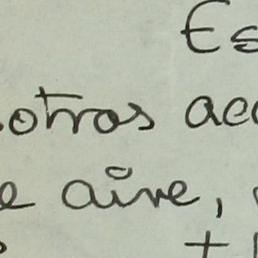 Es
otros ac
e aire,